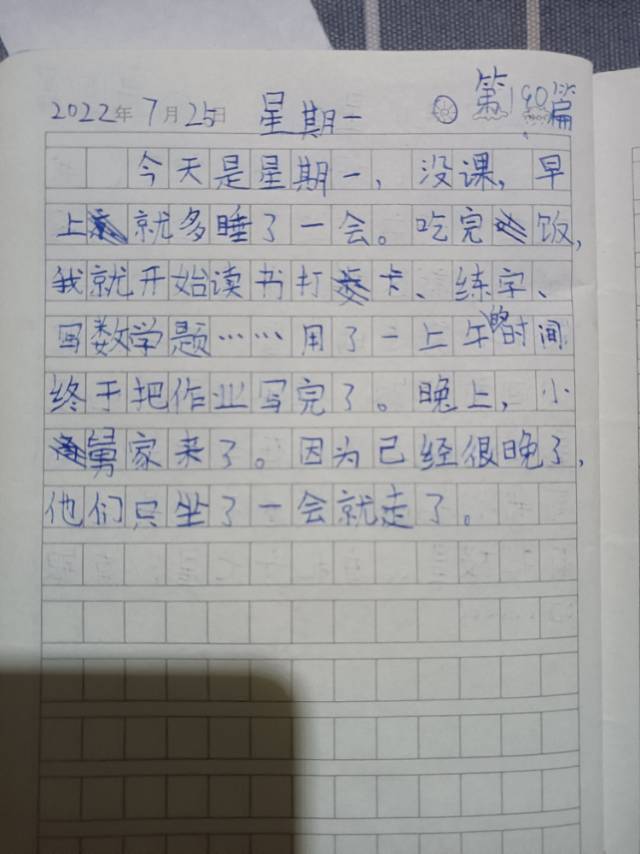 2022年7月25日 星期一 第190篇
今天是星期一，没课，早
上就多睡了一会。吃完饭，
我就开始读书打卡、练字、
写数学题……用了一上午的时间
终于把作业写完了。晚上，小
舅家来了。因为已经很晚了，
他们只坐了一会就走了。